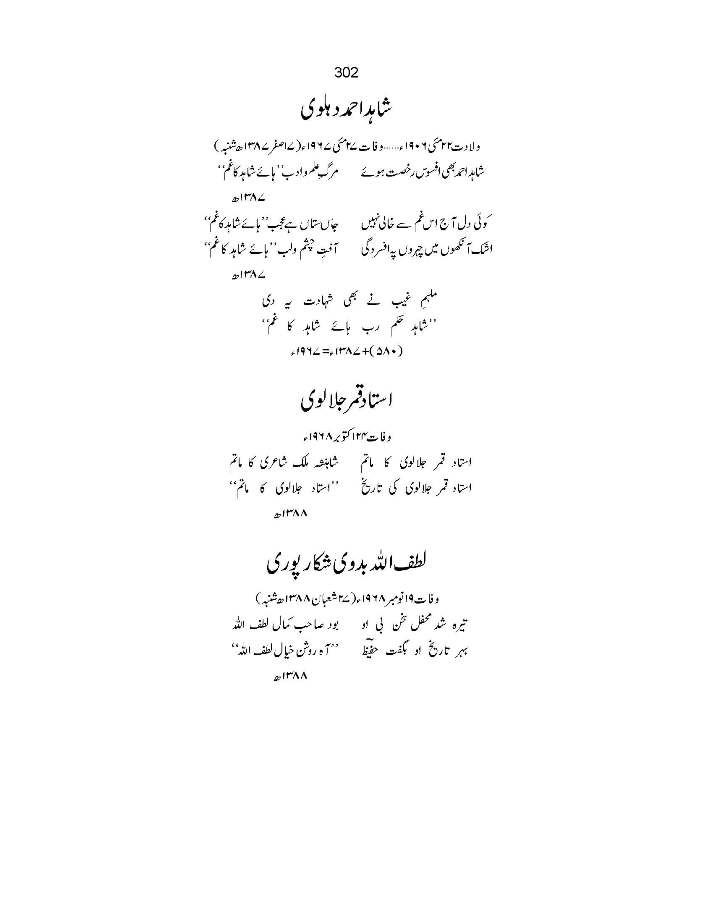 302
شاہد احمد دہلوی
ولادت ۲۲ مئی ۱۹۰۶ء……وفات ۲۷ مئی ۱۹۶۷ء (۱۷ صفر ۱۳۸۷ھ شنبہ)
شاہد احمد بھی افسوس رخصت ہوئے مرگِ علم وادب ''ہائے شاہد کا غم''
۱۳۸۷ھ
کوئی دل آج اس غم سے خالی نہیں جاں ستاں ہے عجب ''ہائے شاہد کا غم''
اشک آنکھوں میں چہروں پہ افسردگی آفتِ چشم ولب ''ہائے شاہد کا غم''
۱۳۸۷ھ
ملہمِ غیب نے بھی شہادت یہ دی
''شاہدِ حکم رب ہائے شاہد کا غم''
(۵۸۰)+۱۳۸۷ء=۱۹۶۷ء
استاد قمر جلالوی
وفات ۲۴ اکتوبر ۱۹۶۸ء
استاد قمر جلالوی کا ماتم شاہنشہ ملک شاعری کا ماتم
استاد قمر جلالوی کی تاریخ ''استاد جلالوی کا ماتم''
۱۳۸۸ھ
لطف اللہ بدوی شکارپوری
وفات ۱۹ نومبر ۱۹۶۸ء (۲۷ شعبان ۱۳۸۸ھ شنبہ)
تیرہ شد محفل سخن بی او بود صاحب کمال لطف اللہ
بہر تاریخ او بگفت حفیظ ''آہ روشن خیال لطف اللہ''
۱۳۸۸ھ